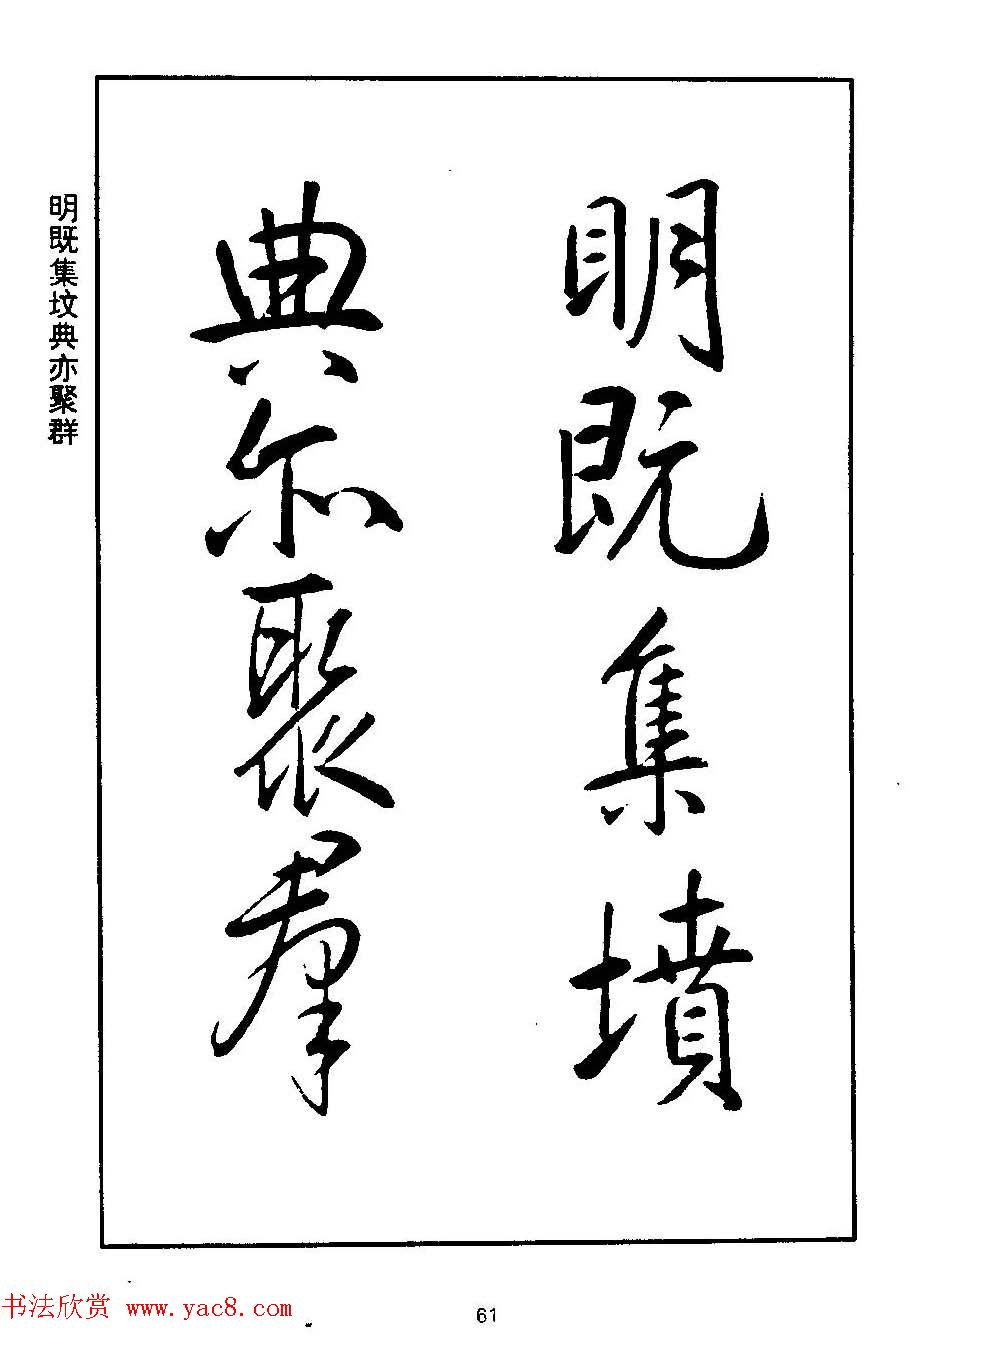 明既集墳
典亦聚羣
明既集坟典亦聚群
书法欣赏 www.yac8.com
61